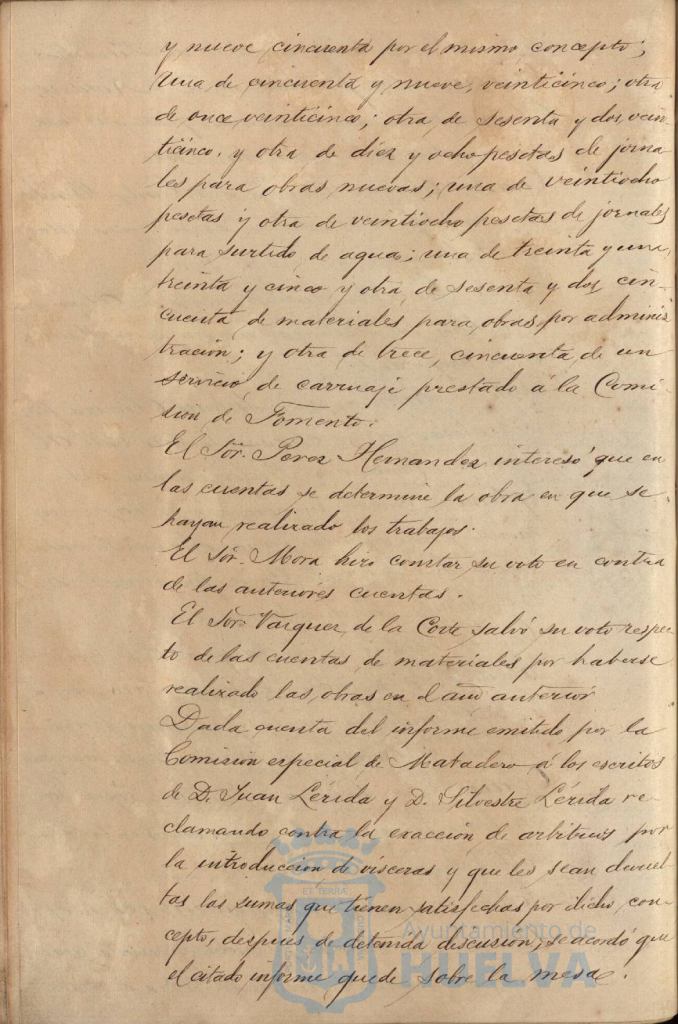 y nueve cincuenta por el mismo concepto;
una de cincuenta y nueve, veinticinco; otra
de once veinticinco; otra de sesenta y dos, vein-
ticinco. y otra de diez y ocho pesetas de jorna
les para obras nuevas; una de veintiocho
pesetas y otra de veintiocho pesetas de jornales
para surtido de agua; una de treinta y una,
treinta y cinco y otra de sesenta y dos cin-
cuenta de materiales para obras por adminis
tración; y otra de trece, cincuenta de un
servicio de carruaje prestado á la Comi-
sión de Fomento.
El Sör. Perez Hernandez interesó que en
las cuentas se determine la obra en que se
hayan realizado los trabajos.
El Sör. Mora hizo constar su voto en contra
de las anteriores cuentas.
El Sör. Vazquez de la Corte salvó su voto respec
to de las cuentas de materiales por haberse
realizado las obras en el año anterior
Dada cuenta del informe emitido por la
Comision especial de Matadero á los escritos
de D. Juan Lérida y D. Silvestre Lérida re-
clamando contra la exacción de arbitrios por
la introduccion de vísceras y que les sean devuel
tas las sumas que tienen satisfechas por dicho con-
cepto, despues de detenida discusion, se acordó que
el citado informe quede sobre la mesa.
Ayuntamiento de
HUELVA